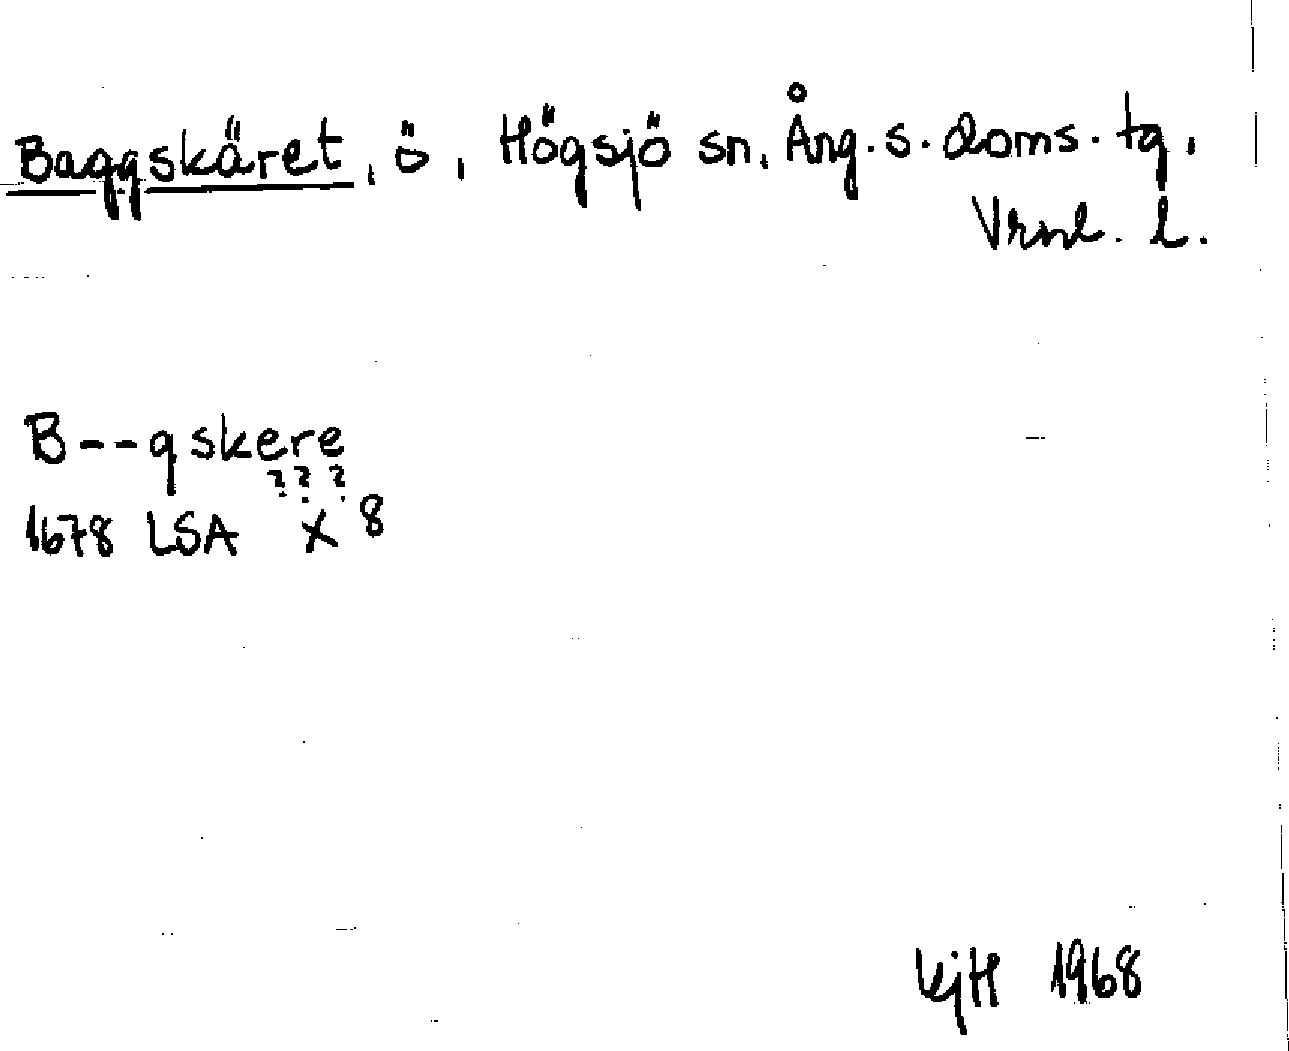 Baggskäret, ö, Högsjö sn, Ång. s. doms. tg,
Vrnl. l.
B--gskere
???
1678 LSA X 8
KjH 1968